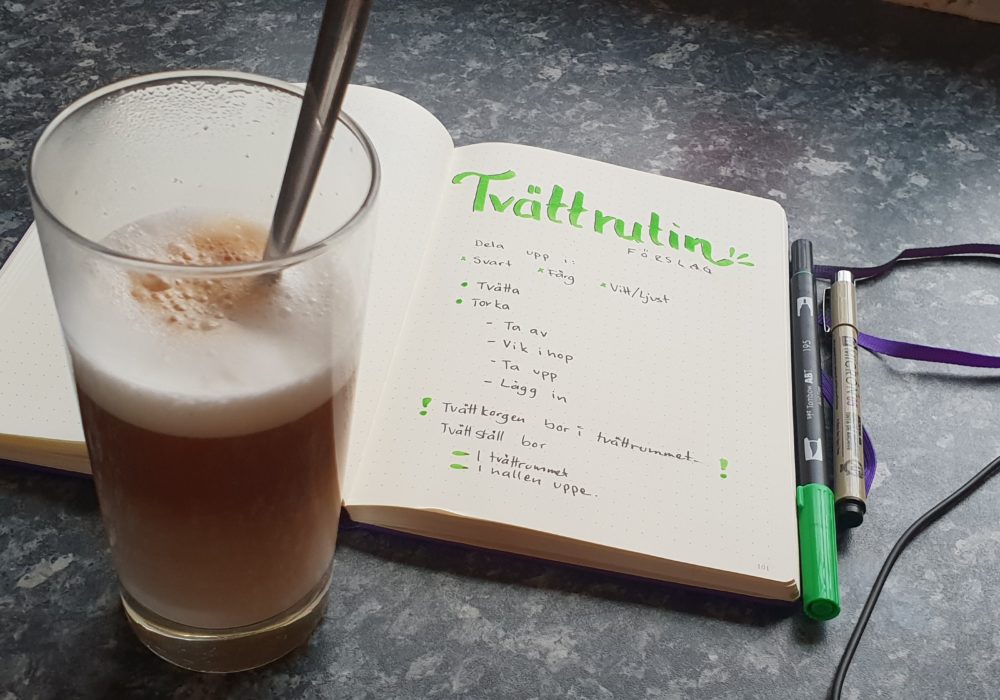 Tvättrutin
FÖRSLAG
Dela upp i:
* Svart * Färg * Vitt/Ljust
• Tvätta
• Torka
- Ta av
- Vik ihop
- Ta upp
- Lägg in
! Tvättkorgen bor i tvättrummet. !
Tvättställ bor
- I tvättrummet
- I hallen uppe.
101
Tombow ABT
195
MICRON